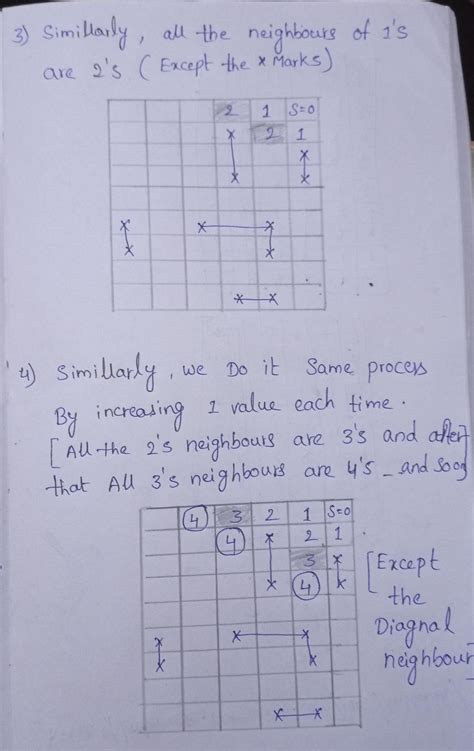 3) Simillarly, all the neighbours of 1's
are 2's (Except the x Marks)
2 1 S=0
x 2 1
x
x x
x x x
x x
x x
4) Simillarly, we Do it Same process
By increasing 1 value each time.
[All the 2's neighbours are 3's and after
that All 3's neighbours are 4's _ and Soon]
4 3 2 1 S=0
4 x 2 1
3 x
x 4 x
x x x
x x
x x
[Except
the
Diagnal
neighbour